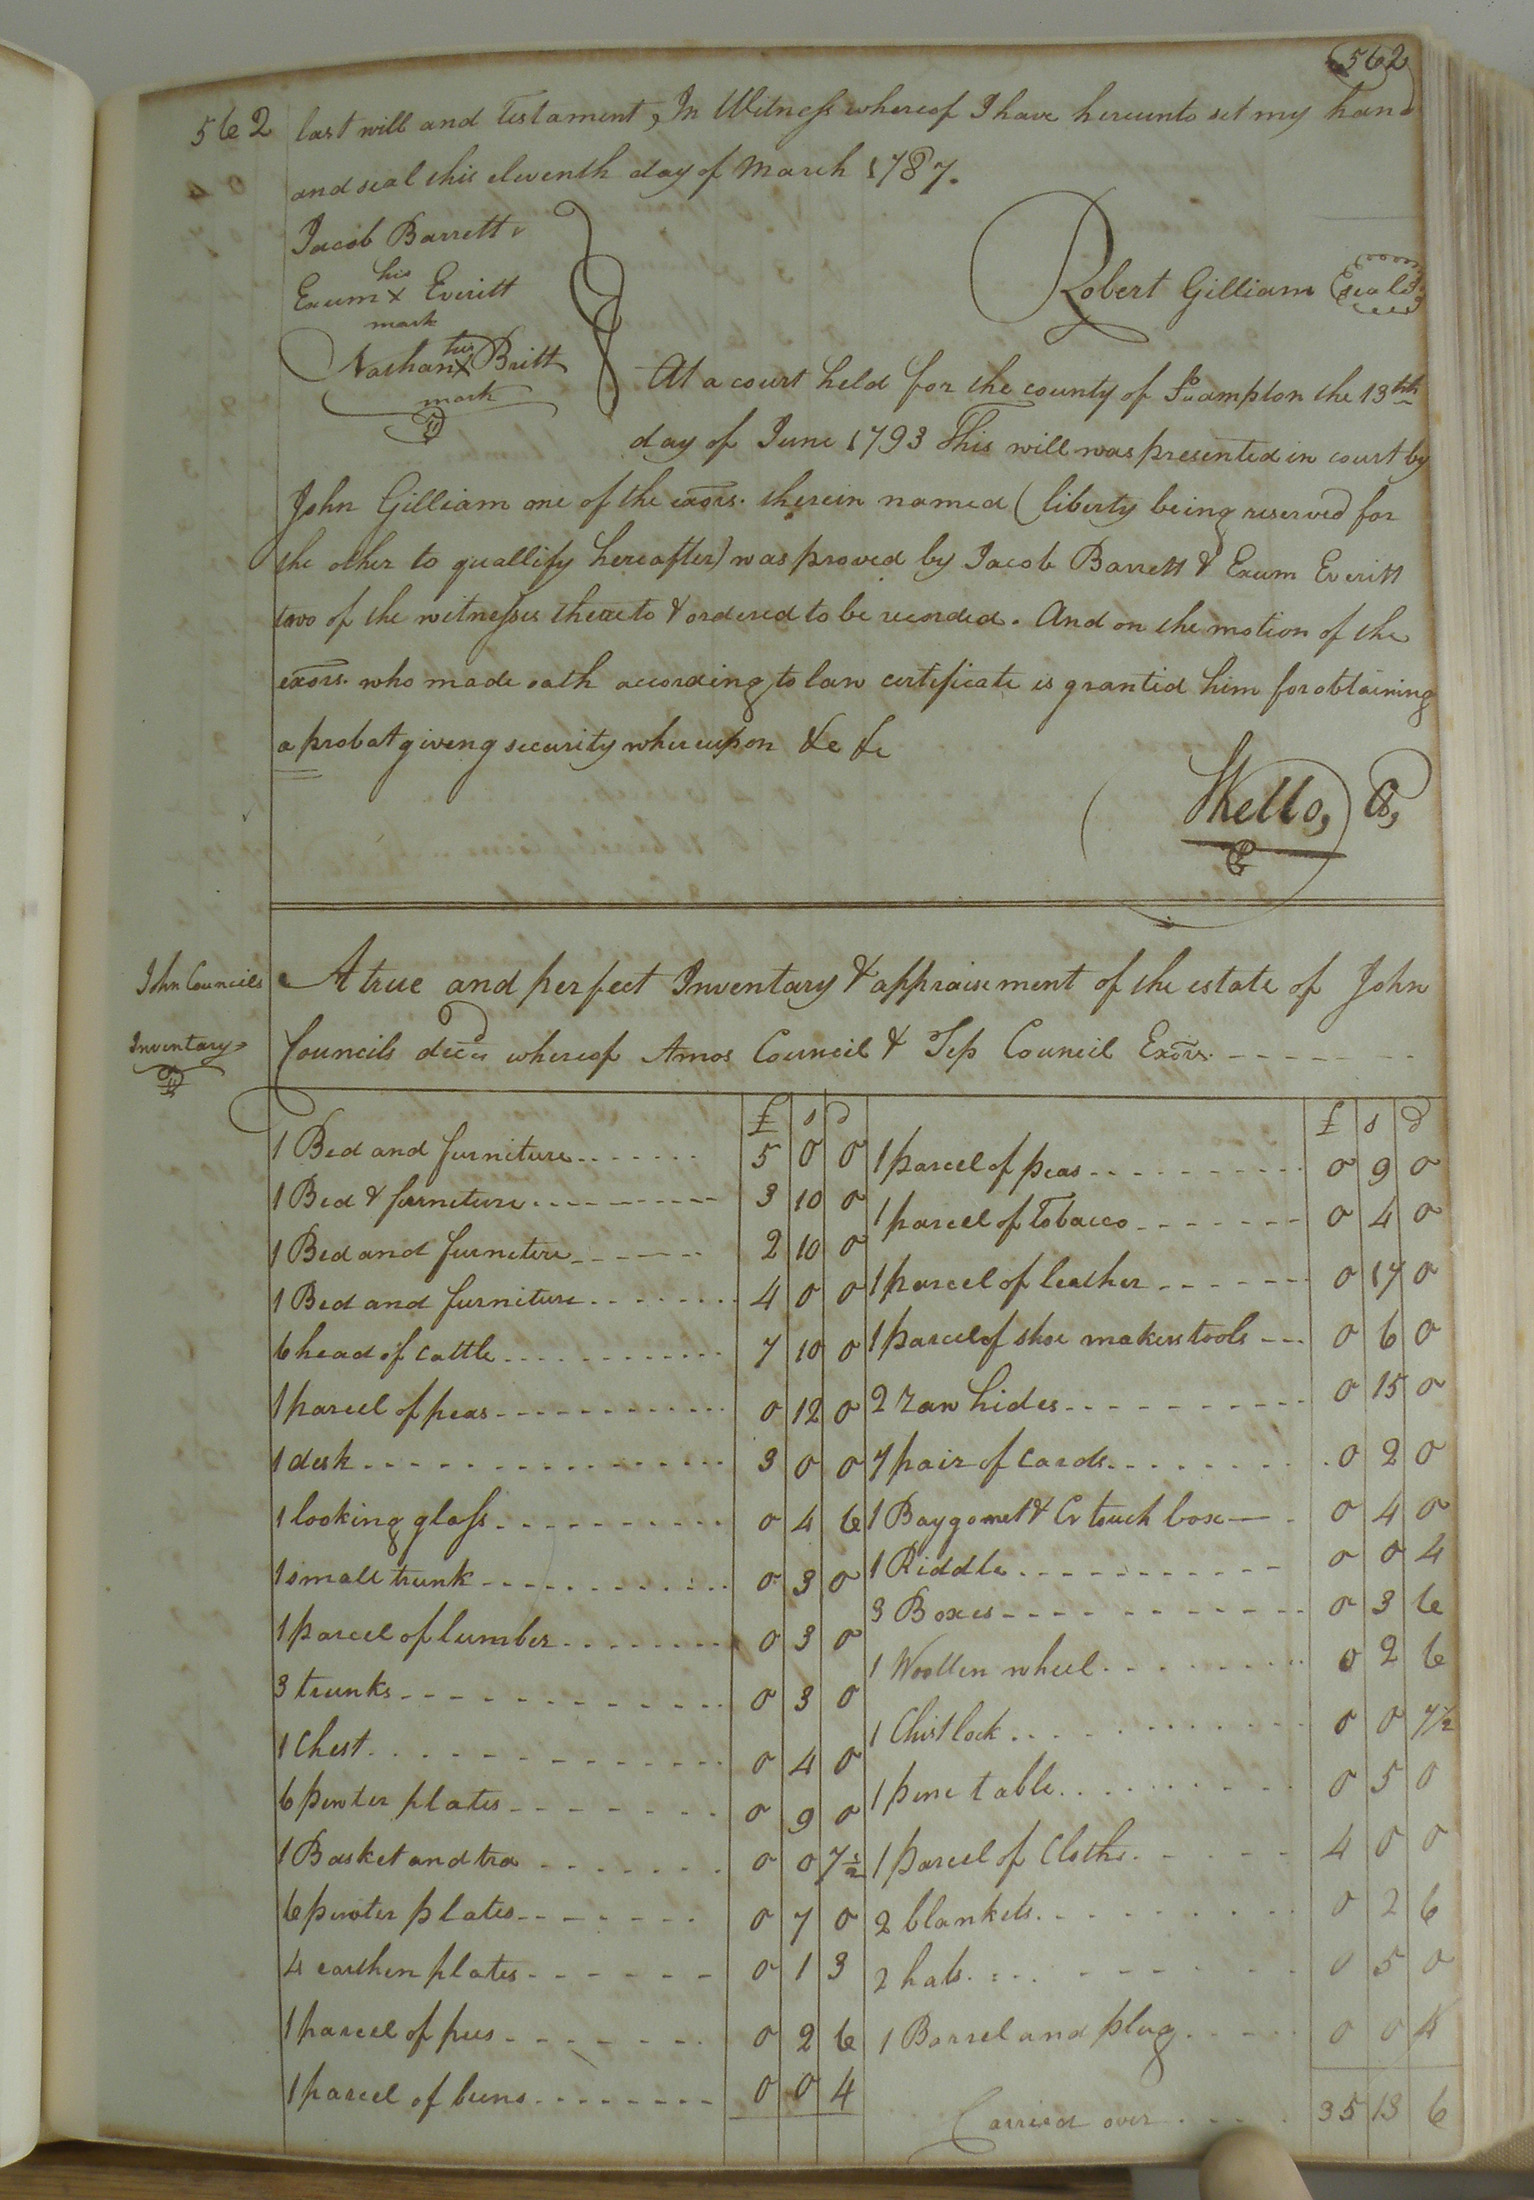 562
562
last will and Testament, In Witness whereof I have hereunto set my hand
and seal this eleventh day of March 1787.
Jacob Barrett
his
Exum x Everitt
mark
his
Nathan x Britt
mark
Robert Gilliam (seal)
At a court held for the county of Soampton the 13th
day of June 1793 This will was presented in court by
John Gilliam one of the exors. therein named (liberty being reserved for
the other to quallify hereafter) was proved by Jacob Barrett & Exum Everitt
two of the witnesses thereto & ordered to be recorded. And on the motion of the
exors. who made oath according to law certificate is granted him for obtaining
a probat giveng security whereupon &c &c
Skello, C,
John Councils
Inventary
A true and perfect Inventary & appraisement of the estate of John
Councils decd. whereof Amos Council & Jep Council Exors.
£ s d
1 Bed and furniture 5 0 0
1 Bed & furniture 3 10 0
1 Bed and furneture 2 10 0
1 Bed and furniture 4 0 0
6 head of cattle 7 10 0
1 parcel of peas 0 12 0
1 desk 3 0 0
1 looking glass 0 4 6
1 small trunk 0 3 0
1 parcel of lumber 0 3 0
3 trunks 0 3 0
1 Chest 0 4 0
6 pewter plates 0 9 0
1 Basket and tea 0 0 7½
6 pewter plates 0 7 0
4 earthen plates 0 1 3
1 parcel of pees 0 2 6
1 parcel of beens 0 0 4
£ s d
1 parcel of peas 0 9 0
1 parcel of Tobacco 0 4 0
1 parcel of leather 0 17 0
1 parcel of shoe makers tools 0 6 0
2 raw hides 0 15 0
7 pair of cards 0 2 0
1 Baygonet & Cr touch box 0 4 0
1 Riddle 0 0 4
3 Boxes 0 3 6
1 Woollen wheel 0 2 6
1 Chist lock 0 0 7½
1 pine table 0 5 0
1 parcel of Cloths 4 0 0
2 blankets 0 2 6
2 hats 0 5 0
1 Barrel and plug 0 0 4
Carried over 35 13 6